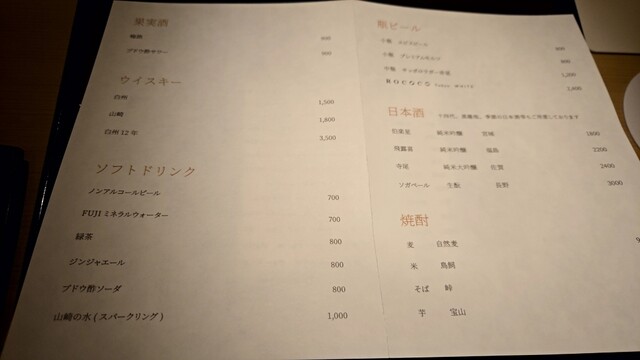 果実酒
梅酒 800
ブドウ酢サワー 800
ウイスキー
白州 1,500
山崎 1,800
白州 12 年 3,500
ソフトドリンク
ノンアルコールビール 700
FUJI ミネラルウォーター 700
緑茶 800
ジンジャエール 800
ブドウ酢ソーダ 800
山崎の水 ( スパークリング ) 1,000
瓶ビール
小瓶 800
小瓶 プレミアムモルツ 800
中瓶 1,200
ROCOCO Tokyo 2,400
日本酒
伯楽星 純米吟醸 宮城 1800
飛露喜 純米吟醸 福島 2200
寺尾 純米大吟醸 佐賀 2400
ソガペール 生酛 長野 3000
焼酎
麦 自然麦
米 鳥飼
そば 峠
芋 宝山